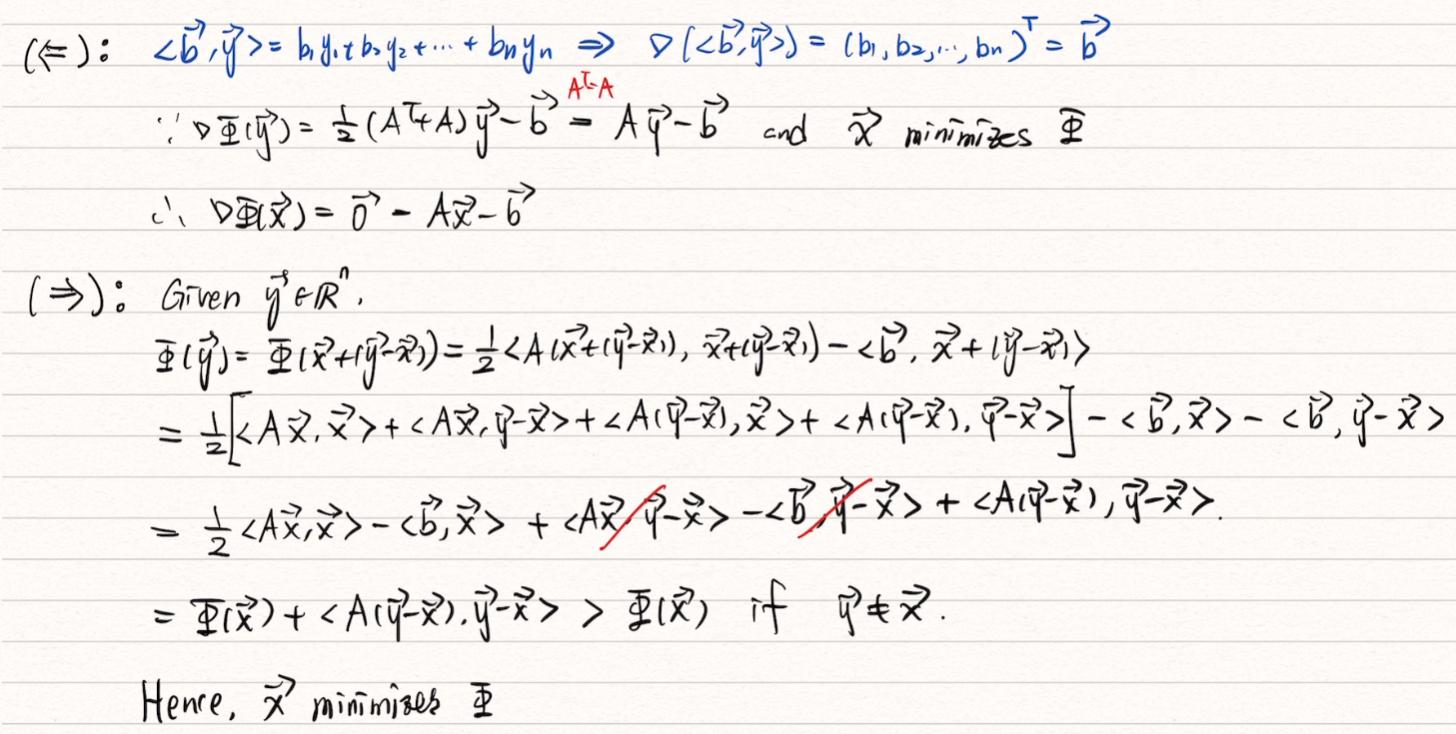 (⇐): <b⃗,y⃗> = b₁y₁+b₂y₂+⋯+bₙyₙ ⇒ ∇(<b⃗,y⃗>) = (b₁,b₂,…,bₙ)ᵀ = b⃗
Aᵀ=A
∵ ∇Φ(y⃗) = ½(Aᵀ+A)y⃗-b⃗ = Ay⃗-b⃗ and x⃗ minimizes Φ
∴ ∇Φ(x⃗) = 0⃗ - Ax⃗-b⃗
(⇒): Given y⃗∈ℝⁿ,
Φ(y⃗) = Φ(x⃗+(y⃗-x⃗)) = ½<A(x⃗+(y⃗-x⃗)), x⃗+(y⃗-x⃗)) - <b⃗, x⃗+(y⃗-x⃗)>
= ½[<Ax⃗,x⃗> + <Ax⃗,y⃗-x⃗> + <A(y⃗-x⃗),x⃗> + <A(y⃗-x⃗),y⃗-x⃗>] - <b⃗,x⃗> - <b⃗,y⃗-x⃗>
= ½<Ax⃗,x⃗> - <b⃗,x⃗> + <Ax⃗,y⃗-x⃗> - <b⃗,y⃗-x⃗> + <A(y⃗-x⃗),y⃗-x⃗>.
= Φ(x⃗) + <A(y⃗-x⃗),y⃗-x⃗> > Φ(x⃗) if y⃗≠x⃗.
Hence, x⃗ minimizes Φ